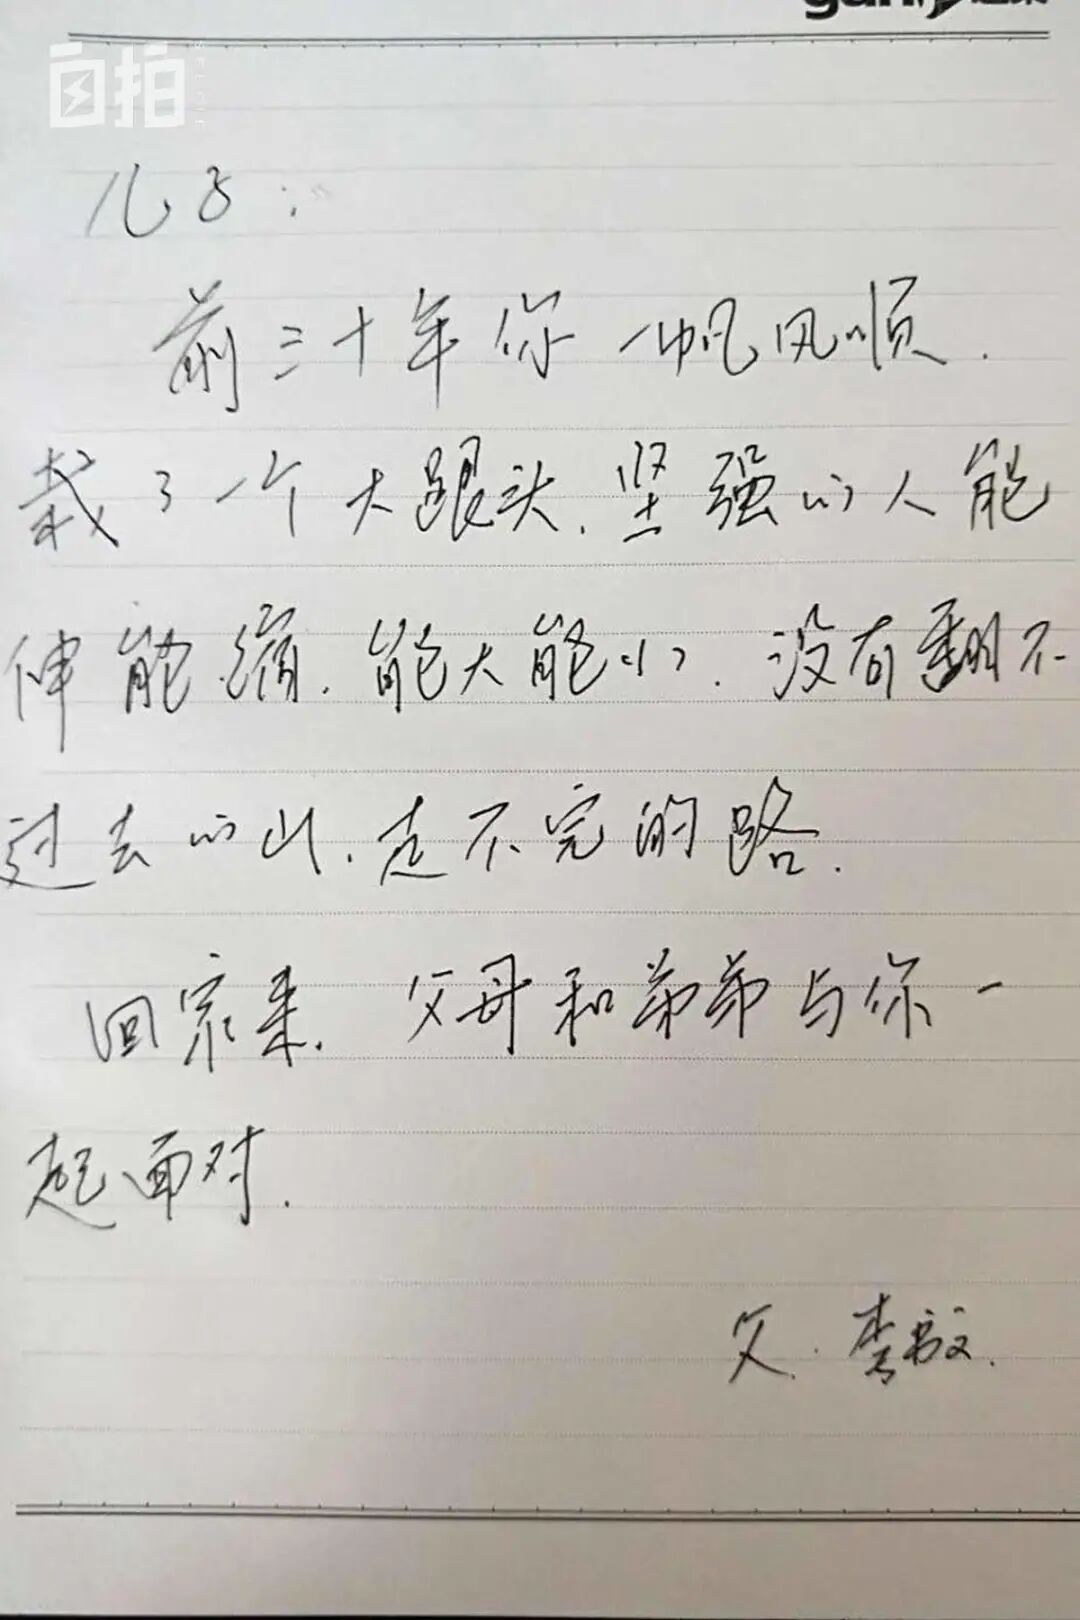 自拍
儿子：
前三十年你一帆风顺.
栽了一个大跟头.坚强的人能
伸能缩.能大能小.没有翻不
过去的山.走不完的路.
回家来.父母和弟弟与你一
起面对.
父.李敏.